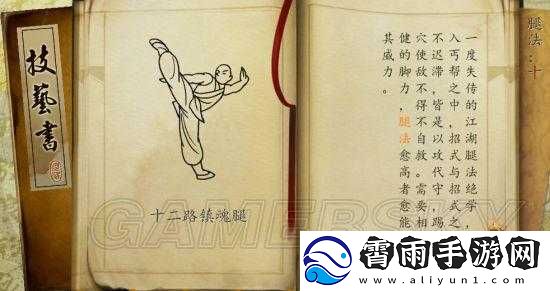 技藝書
十二路镇魂腿
腿法：十
一度失传的江湖腿法绝学，
入丐帮之中，招式与招式之
不迟滞，皆是以攻代守，踢
穴使敌不得不自救。需要相
健的脚力，腿法愈高者愈能
其威力。
GAMERSKY
霄雨手游网
www.aliyun1.com